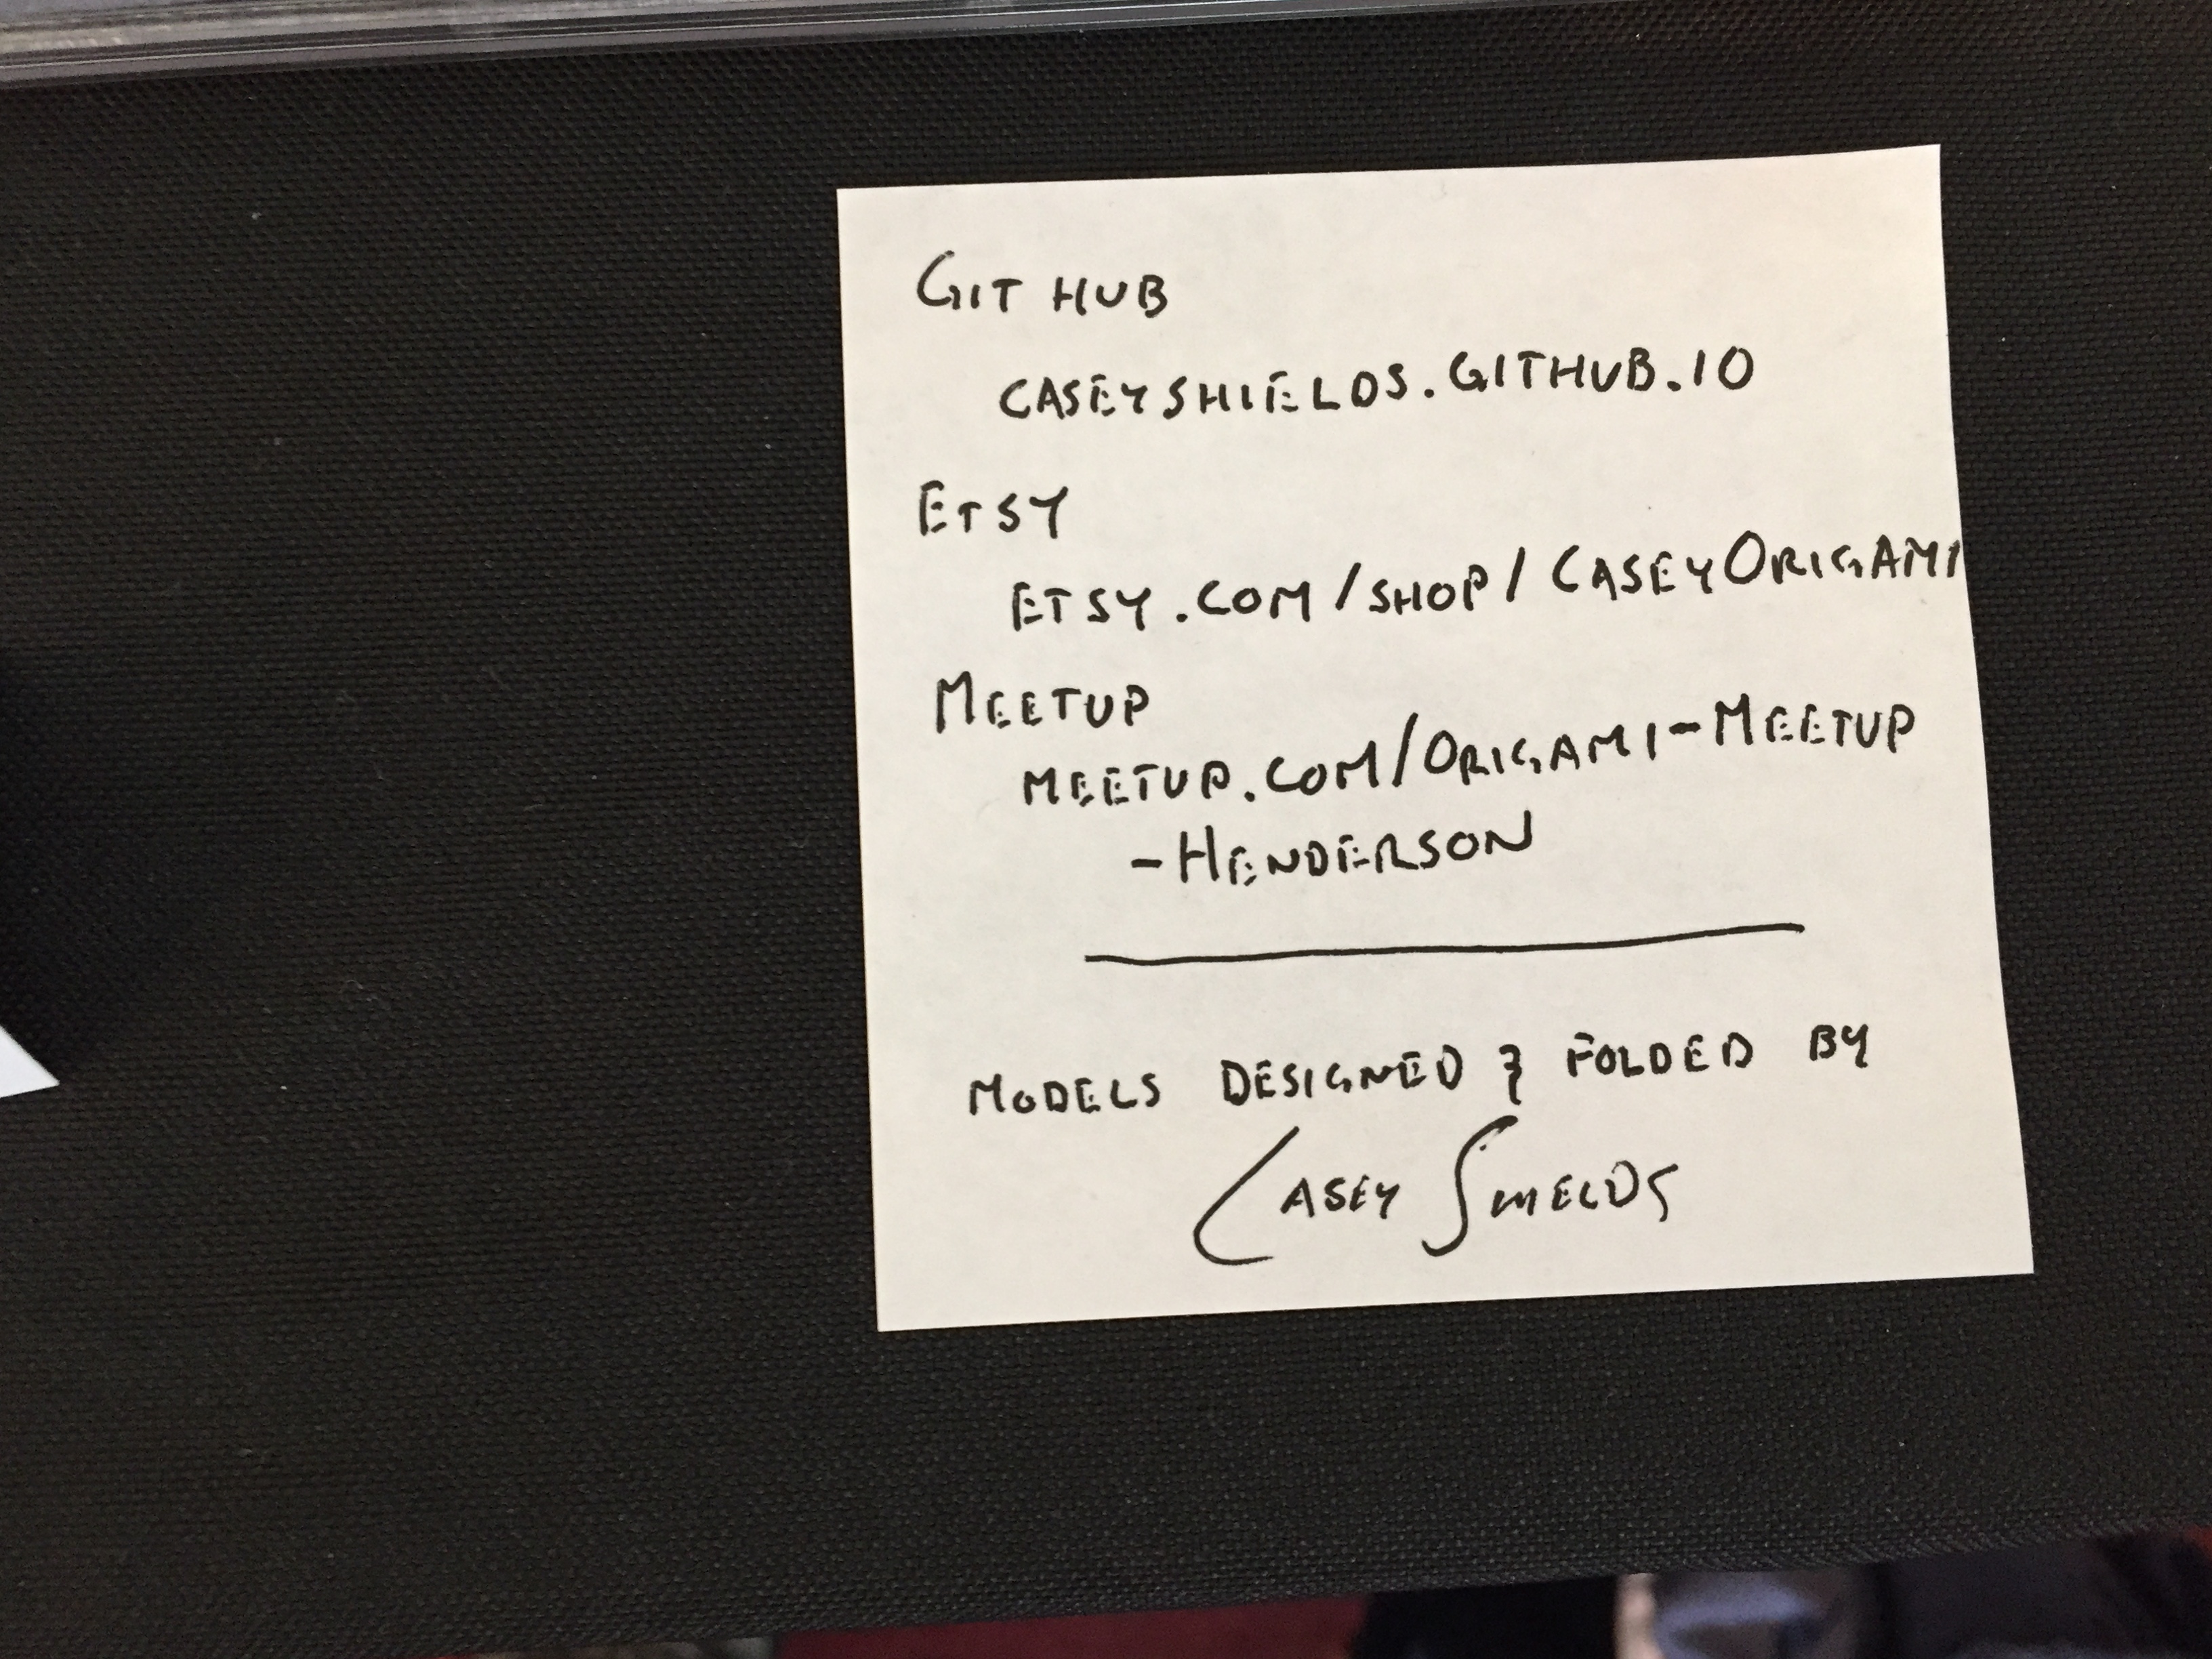 GIT HUB
CASEYSHIELDS.GITHUB.IO
ETSY
ETSY.COM/SHOP/CASEYORIGAMI
MEETUP
MEETUP.COM/ORIGAMI-MEETUP
-HENDERSON
MODELS DESIGNED & FOLDED BY
CASEY SHIELDS